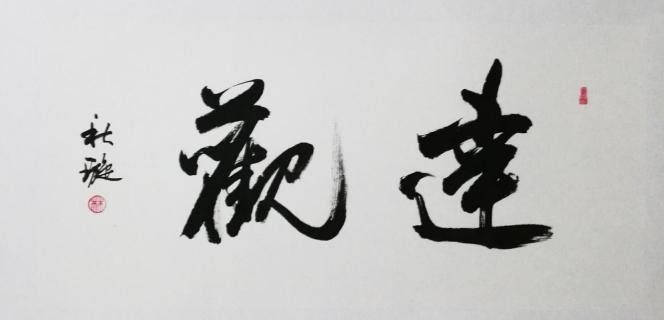 達觀
秋璇